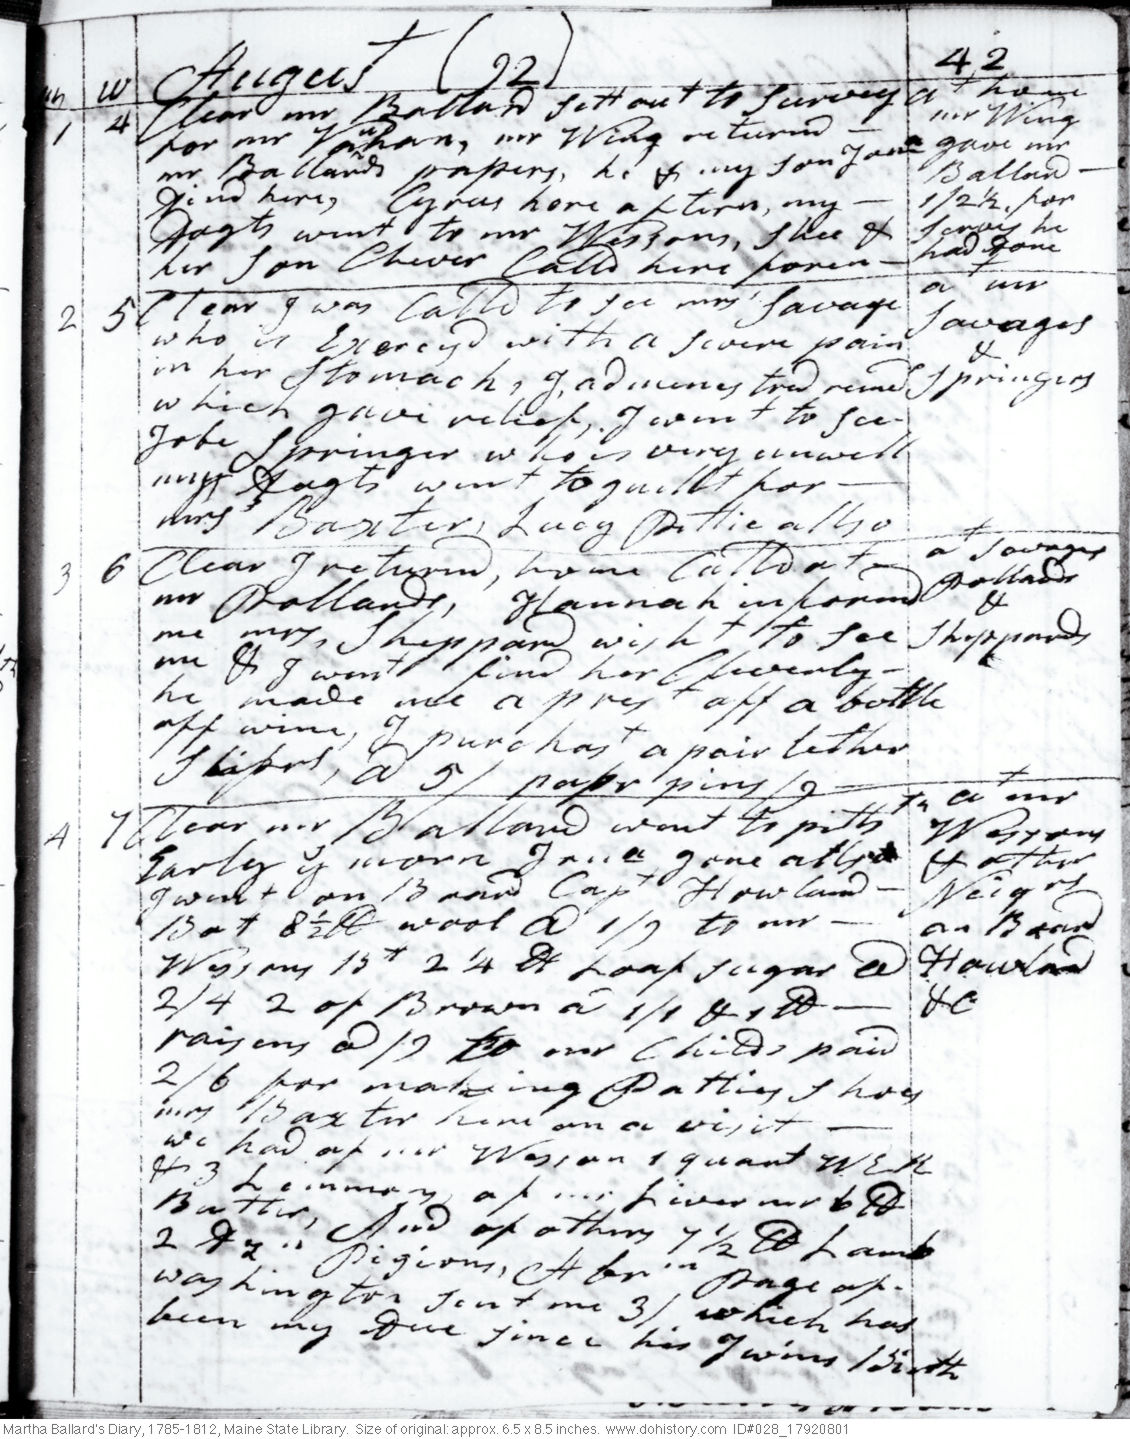 m w August (92) 42
1 4 Clear mr Ballard sett out to Survey
for mr Vahan, mr Wing returnd —
mr Ballards papers, he & my son Jona
dind here, Cyrus here aftern, my —
dagts went to mr Wessons, shee &
her son Chever Calld here foren —
at home
mr Wing
gave mr
Ballard —
1/2½ for
servis he
had done
2 5 Clear I was Calld to see mrs Savage
who is Exercisd with a severe pain
in her Stomach, I, admenestred remd
which gave relief, I went to see
Jobe Springer who is very unwell
my dagts went to quillt for —
mrs Baxter, Lucy Pollie allso
at mr
Savages
&
Springers
3 6 Clear I returnd, home Calld at
mr Pollards, Hannah informd
me mrs, Sheppard wisht to see
me & I went find her Cleverly —
he made me a prest off a bottle
off wine, I purchast a pair lether
Slipers, @ 5/ paper pins /9 —
at Savages
Pollards
&
Sheppards
4 7 Clear mr Ballard went to pitts tn
Early ys morn Jona gone allso
I went on Board Capt Howland —
Bot 8½ lb wool @ 1/9 to mr —
Wessons Bt 2¼ lb Loaf sugar @
2/4 2 of Brown @ 1/1 & 1 lb —
raisens @ /9 to mr Childs paid
2/6 for making Patties shoes
mrs Baxter here on a visit —
we had of mr Wesson 1 quart W E R
& 3 Lemmons, of mr Livermor 6 lb
Butter, And of others 7½ lb Lamb
2 dzn Pigions, Abrm Page of
washington sent me 3/ which has
been my due since his Twins Birth
at mr
Wessons
& other
Neigrs
on Board
Howland
&C
Martha Ballard's Diary, 1785-1812, Maine State Library. Size of original: approx. 6.5 x 8.5 inches. www.dohistory.com ID#028_17920801